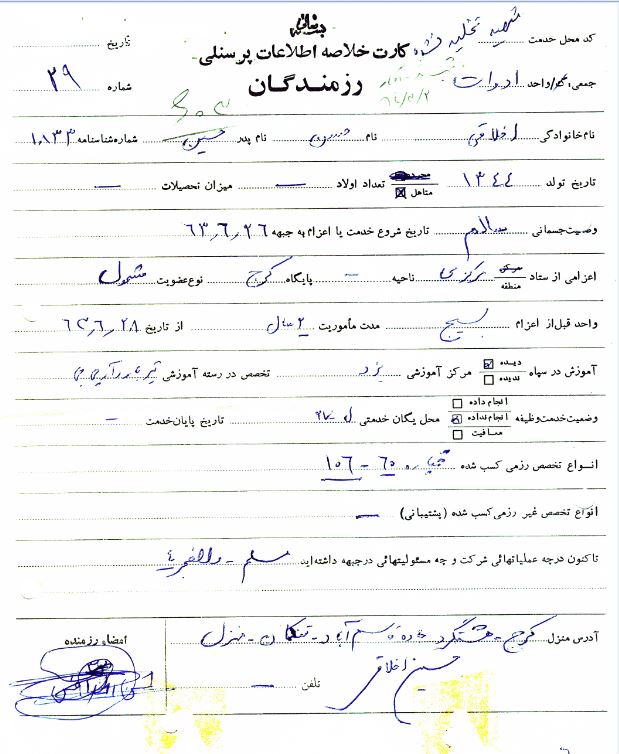 بسمه تعالی
کد محل خدمت شهید تخلیه شده کارت خلاصه اطلاعات پرسنلی تاریخ
جمعی گر/واحد ادوات رزمندگان شماره ۲۹
نام خانوادگی اخلاقی نام حسن نام پدر حسین شماره شناسنامه ۱۸۳۳
تاریخ تولد ۱۳۴۴ متاهل ☒ تعداد اولاد — میزان تحصیلات —
وضعیت جسمانی سالم تاریخ شروع خدمت یا اعزام به جبهه ۶۳/۶/۲۶
اعزامی از ستاد منطقه مرکزی ناحیه — پایگاه کرج نوع عضویت مشمول
واحد قبل از اعزام بسیج مدت مأموریت ۲ سال از تاریخ ۶۳/۶/۲۸
آموزش در سپاه دیده ☑ ندیده ☐ مرکز آموزشی یزد تخصص در رسته آموزشی
وضعیت خدمت وظیفه انجام داده ☐ انجام نداده ☒ معافیت ☐ محل یگان خدمتی ل ۲۷ تاریخ پایان خدمت –
انواع تخصص رزمی کسب شده خمپاره ۶۰ – ۱۰۶
انواع تخصص غیر رزمی کسب شده (پشتیبانی) —
تاکنون درچه عملیاتهائی شرکت و چه مسئولیتهائی درجبهه داشته‌اید مسلم – والفجر ۴
آدرس منزل کرج – هشتگرد جاده قاسم آباد – تنکمان – منزل امضاء رزمنده
حسین اخلاقی
تلفن —